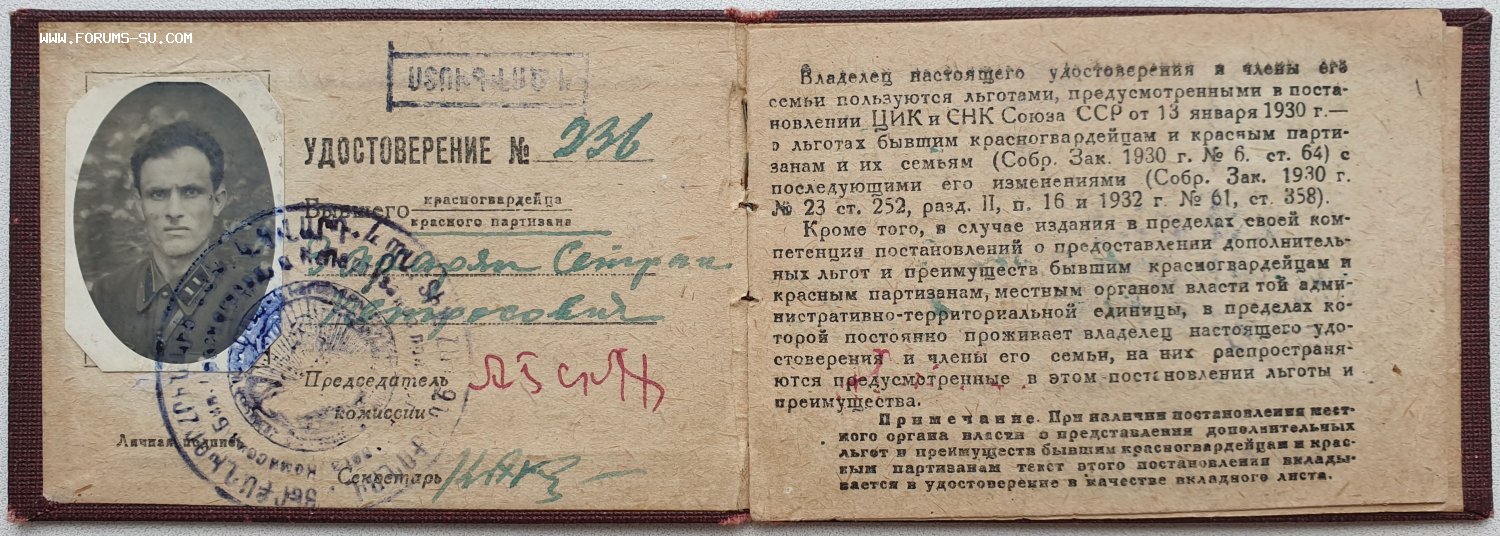 WWW.FORUMS-SU.COM
УДОСТОВЕРЕНИЕ № 236
Бывшего
красногвардейца
красного партизана
Сетрак
Председатель
комиссии
Личная подпись
Секретарь
Владелец настоящего удостоверения и члены его
семьи пользуются льготами, предусмотренными в поста-
новлении ЦИК и СНК Союза ССР от 13 января 1930 г.—
о льготах бывшим красногвардейцам и красным парти-
занам и их семьям (Собр. Зак. 1930 г. № 6. ст. 64) с
последующими его изменениями (Собр. Зак. 1930 г.
№ 23 ст. 252, разд. II, п. 16 и 1932 г. № 61, ст. 358).
Кроме того, в случае издания в пределах своей ком-
петенции постановлений о предоставлении дополнитель-
ных льгот и преимуществ бывшим красногвардейцам и
красным партизанам, местным органом власти той адми-
нистративно-территориальной единицы, в пределах ко-
торой постоянно проживает владелец настоящего удо-
стоверения и члены его семьи, на них распространя-
ются предусмотренные в этом постановлении льготы и
преимущества.
Примечание. При наличии постановления мест-
ного органа власти о представлении дополнительных
льгот и преимуществ бывшим красногвардейцам и крас-
ным партизанам текст этого постановления вклады-
вается в удостоверение в качестве вкладного листа.